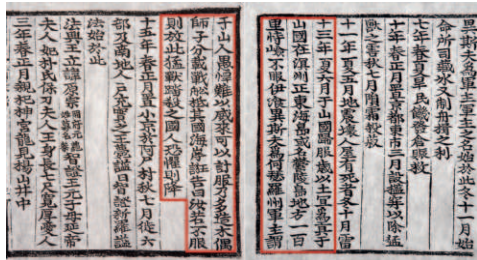 異斯夫爲軍主軍主之名始於此冬十一月始
命所司藏氷又制舟楫之利
七年春夏旱民饑發倉賑救
十年春正月置京都東市三月設檻穽以除猛
獸之害秋七月隕霜殺菽
十一年夏五月地震壞人屋有死者冬十月雷
十三年夏六月于山國歸服歲以土宜爲貢于
山國在溟州正東海島或名鬱陵島地方一百
里恃嶮不服伊飡異斯夫爲何瑟羅州軍主謂
于山人愚悍難以威來可以計服乃多造木偶
師子分載戰舡抵其國海岸誑告曰汝若不服
則放此猛獸踏殺之國人恐懼則降
十五年春正月置小京於阿尸村秋七月徙六
部及南地人戶充實之王薨諡曰智證新羅諡
法始於此
法興王立諱原宗 智證王元子母延帝
夫人妃朴氏保刀夫人王身長七尺寬厚愛人
三年春正月親祀神宮龍見楊山井中